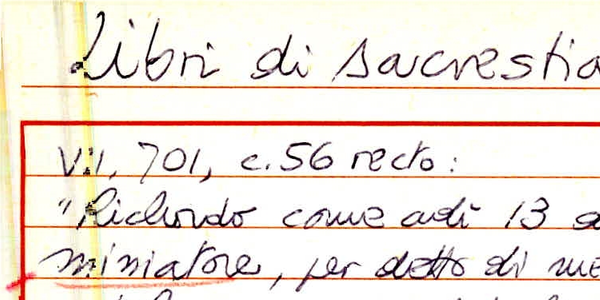 Libri di sacrestia
Vil. 701, c. 56 recto:
"Richordo come adì 13 d
miniatore, per detto di me